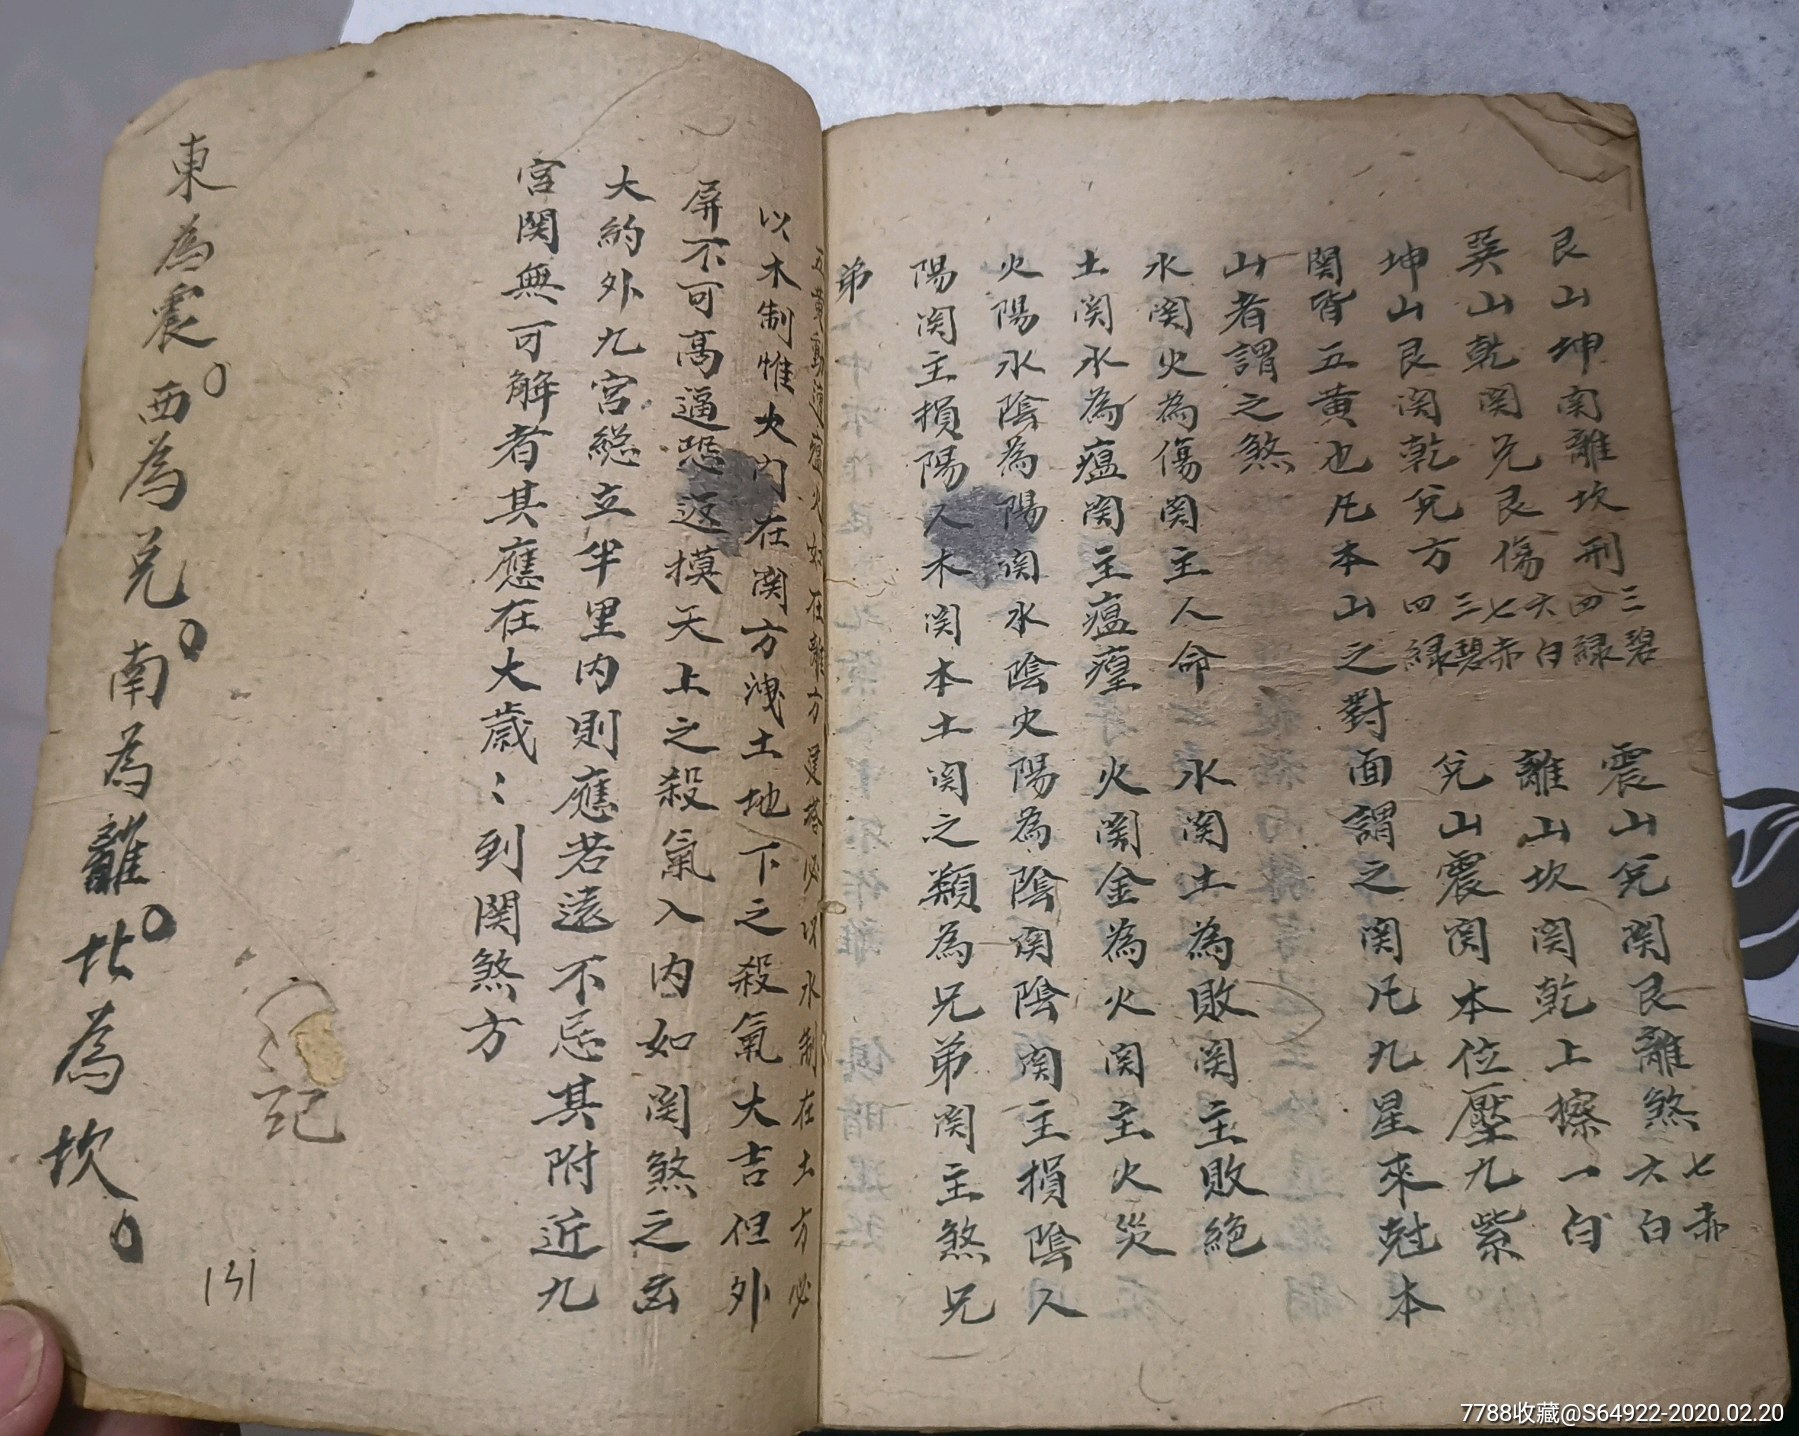 艮山坤南離坎刑三碧四綠 震山兌関艮離煞七赤六白
巽山乾関兌艮傷六白七赤 離山坎関乾上擦一白
坤山艮関乾兌方四綠三碧 兌山震関本位壓九紫
関皆五黃也凡本山之對面謂之関凡九星來尅本
山者謂之煞
水関火為傷関主人命 水関土為敗関主敗絕
土関水為瘟関主瘟瘽 火関金為火関主火災
火陽水陰為陽関水陰火陽為陰関陰関主損陰人
陽関主損陽人木関本土関之類為兄弟関主煞兄
弟
五黃 瘟火如在離方建塔必以水制在土方必
以木制惟火內在関方洩土地下之殺氣大吉但外
屏不可高逼恐返摸天上之殺氣入內如関煞之凶
大約外九宮総立半里內則應若遠不忌其附近九
宮関無可解者其應在大歲：到関煞方
記
東為震。西為兌。南為離。北為坎。
131
7788收藏@S64922-2020.02.20